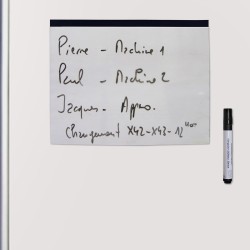 Pierre - Machine 1
Paul - Machine 2
Jacques - Appro.
Changement X42-X43-12h00